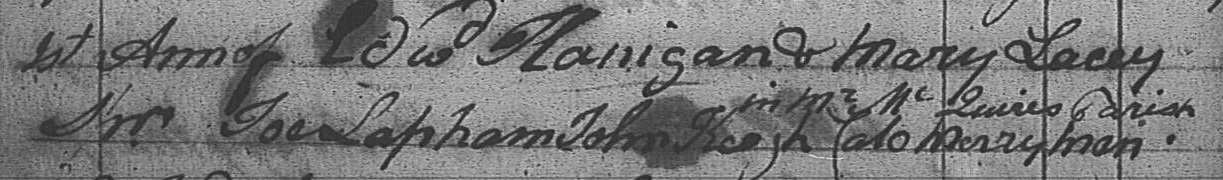 1st Ann of Edwd Flanigan & Mary Lacey
in Mr Mc Quires Parish
Spr Joe Lapham John Keogh Cato Merryman